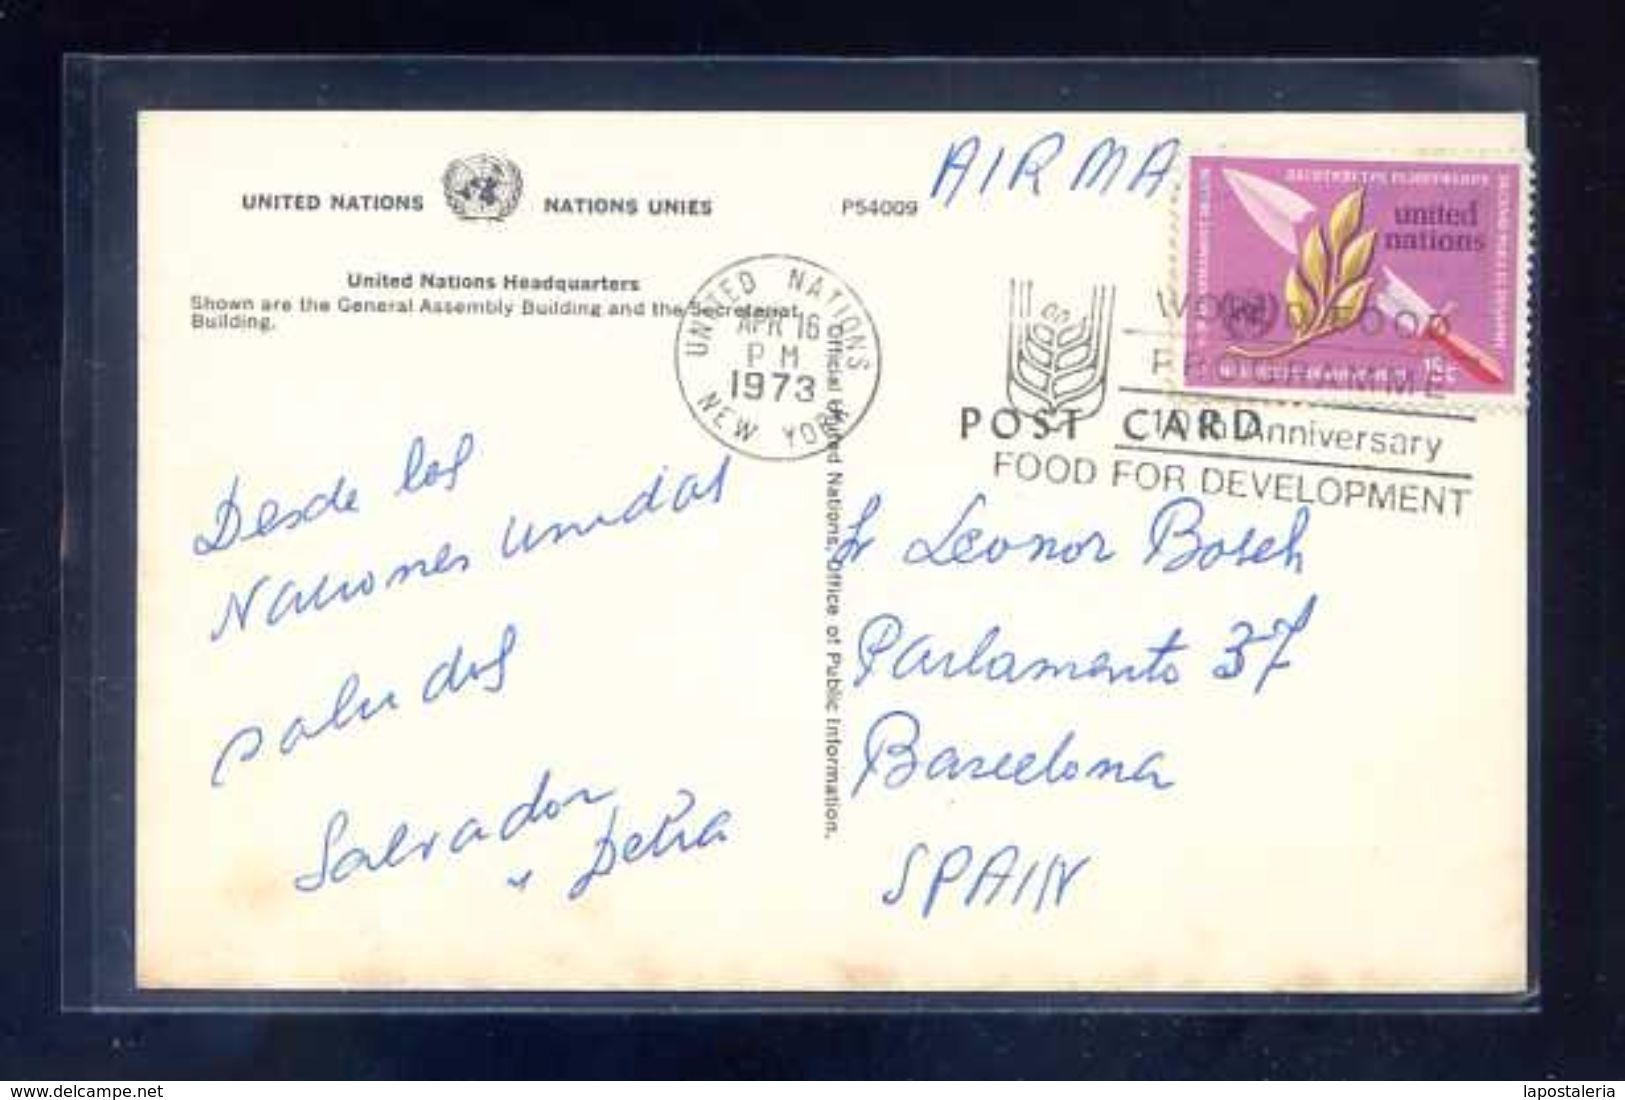 UNITED NATIONS NATIONS UNIES
P54009
AIRMA
United Nations Headquarters
Shown are the General Assembly Building and the Secretariat
Building.
UNITED NATIONS
APR 16
PM
1973
NEW YORK
united
nations
15c
WORLD FOOD
PROGRAMME
10th Anniversary
FOOD FOR DEVELOPMENT
POST CARD
Official United Nations, Office of Public Information.
Desde las
Naciones Unidas
saludos
Salvador
y
Leonor Bosch
Parlamento 37
Barcelona
SPAIN
delcampe.net
lapostaleria